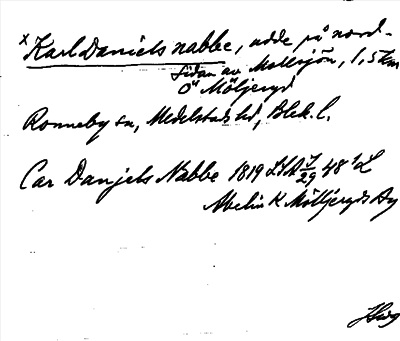 x Karl Daniels nabbe, udde på nord-
sidan av Mollsjön, 1,5 km
O Möljeryd
Ronneby sn, Medelstads hd, Blek. l.
Car Danjels Nabbe 1819 LSA 29 48
K Möljeryds Äg